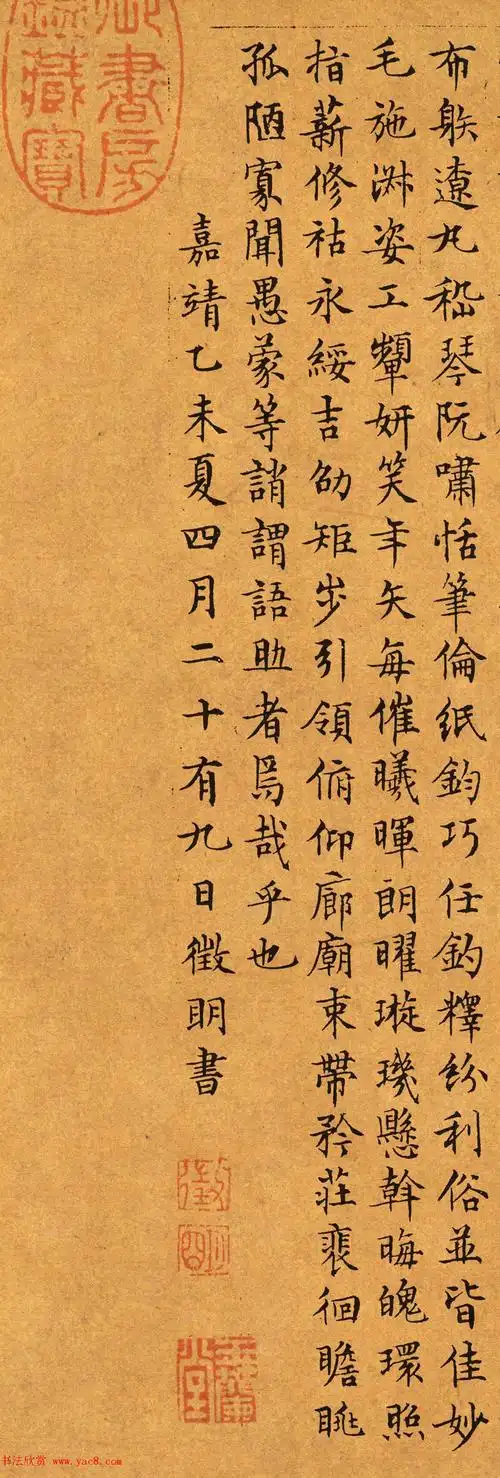 布䠶遼丸嵇琴阮嘯恬筆倫紙鈞巧任釣釋紛利俗並皆佳妙
毛施淑姿工顰妍笑年矢每催曦暉朗曜璇璣懸斡晦魄環照
指薪修祜永綏吉劭矩步引領俯仰廊廟束帶矜莊裵徊瞻眺
孤陋寡聞愚蒙等誚謂語助者焉哉乎也
嘉靖乙未夏四月二十有九日徵明書
御書房
鑑藏寶
徵明
玉蘭堂
书法欣赏 www.yac8.com